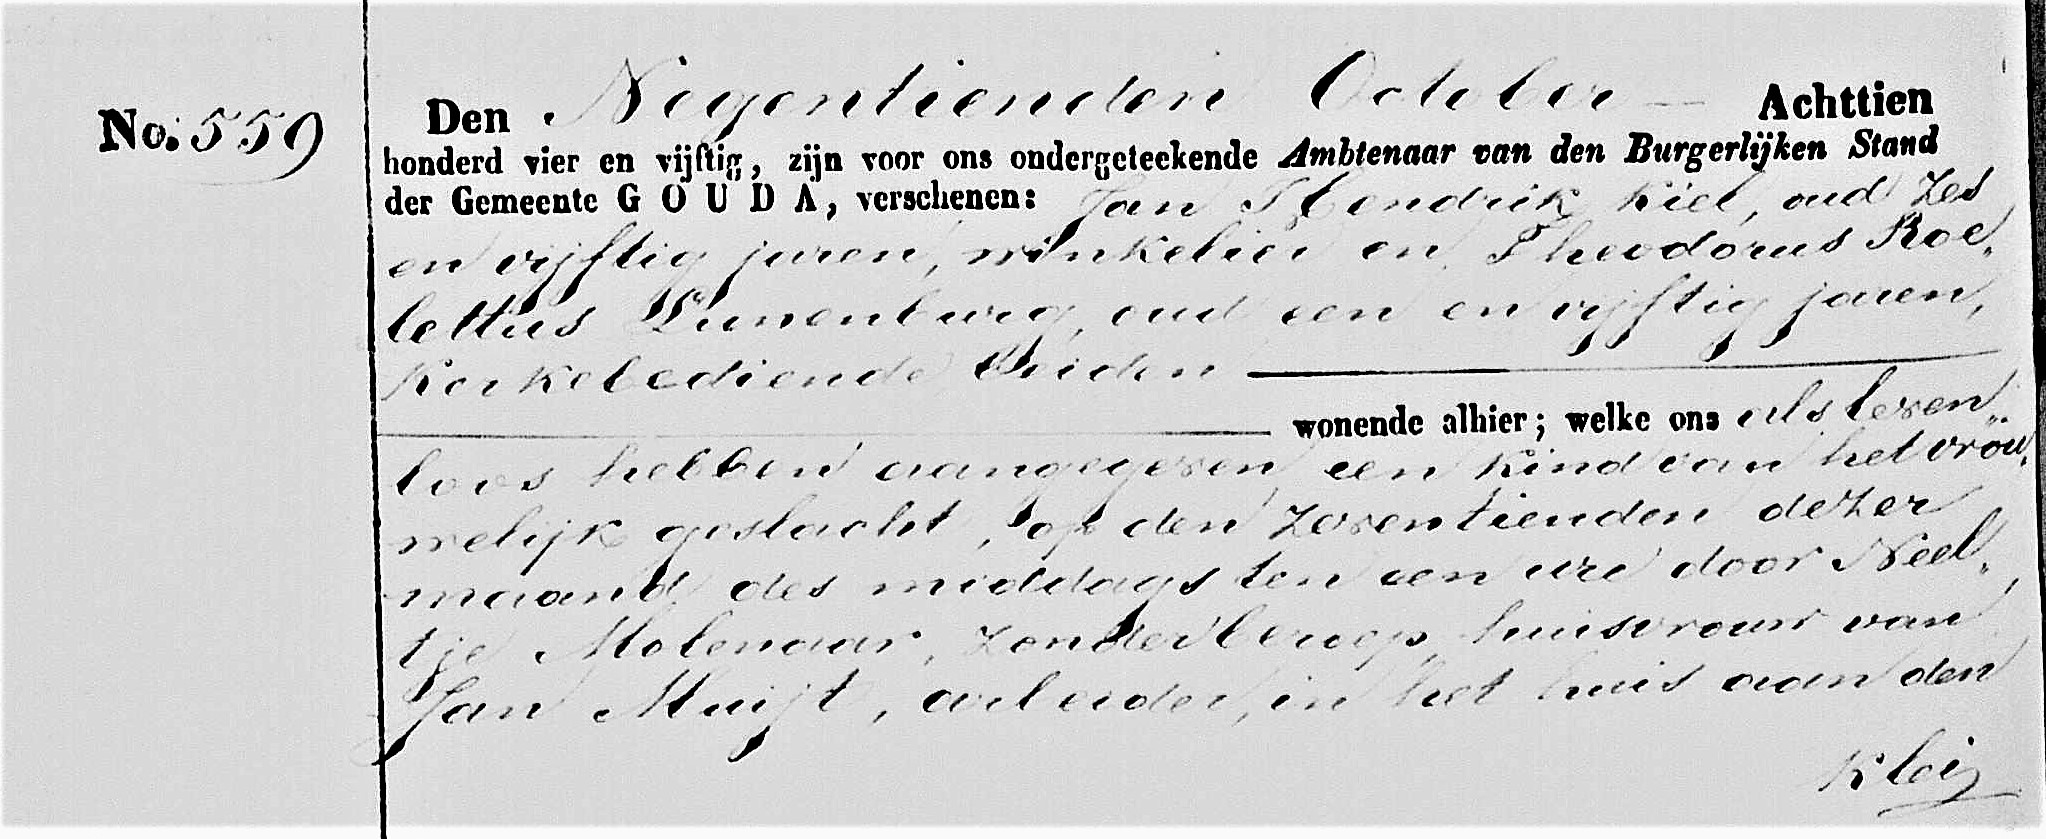 No. 559
Den Negentienden October — Achttien
honderd vier en vijftig, zijn voor ons ondergeteekende Ambtenaar van den Burgerlijken Stand
der Gemeente GOUDA, verschenen: Jan Hendrik Kiel, oud zes
en vijftig jaren, winkelier en Theodorus Roe„
lettus Lunenburg, oud een en vijftig jaren,
Kerkebediende beiden
wonende alhier; welke ons als leven„
loos hebben aangegeven een kind van het vrou„
welijk geslacht, op den zeventienden dezer
maand des middags ten een ure door Neel„
tje Molenaar, zonder beroep, huisvrouw van
Jan Muijt, arbeider, in het huis aan den
Klei